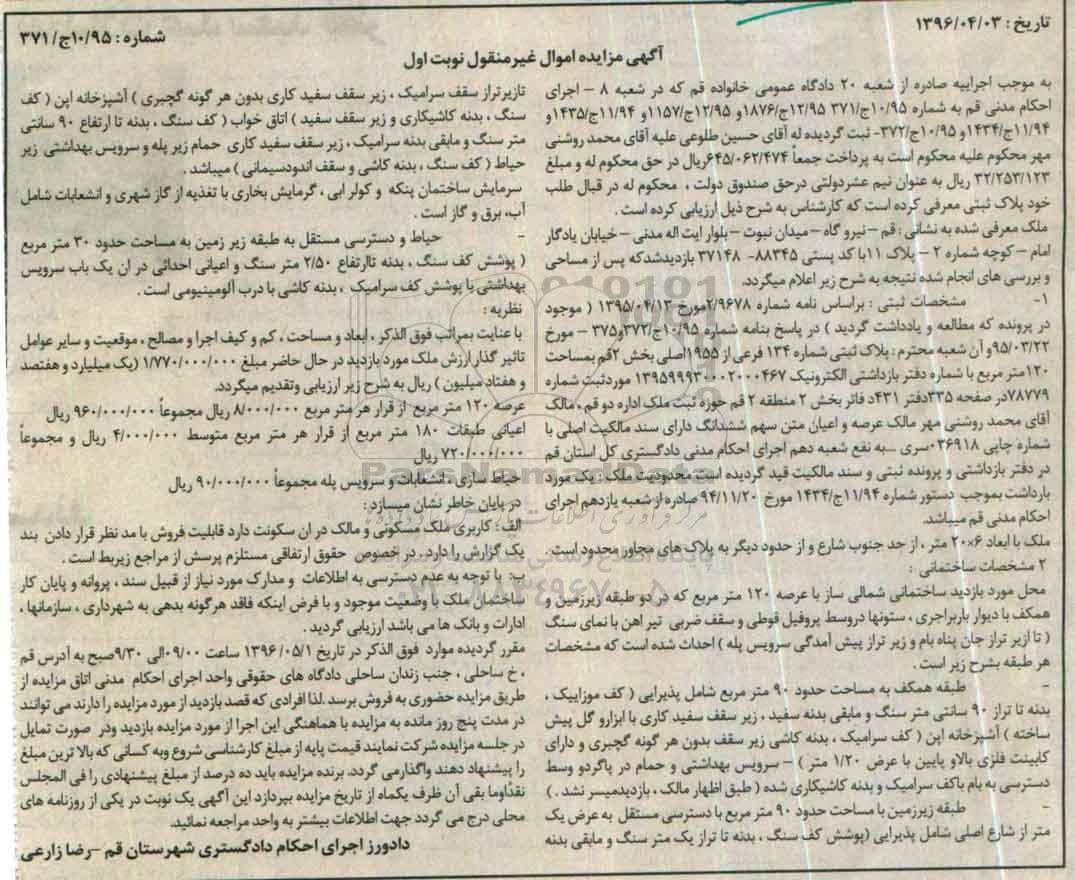 تاریخ : ۱۳۹۶/۰۴/۰۳
شماره : ۱۰/۹۵ج/۳۷۱
آگهی مزایده اموال غیرمنقول نوبت اول
به موجب اجراییه صادره از شعبه ۲۰ دادگاه عمومی خانواده قم که در شعبه ۸ – اجرای
احکام مدنی قم به شماره ۱۰/۹۵ج/۳۷۱ ۱۲/۹۵ج/۱۸۷۶و ۱۲/۹۵ج/۱۱۵۷و ۱۱/۹۴ج/۱۴۳۵و
۱۱/۹۴ج/۱۴۳۴و ۱۰/۹۵ج/۳۷۲- ثبت گردیده له آقای حسین طلوعی علیه آقای محمد روشنی
مهر محکوم علیه محکوم است به پرداخت جمعاً ۶۴۵/۰۶۲/۴۷۴ریال در حق محکوم له و مبلغ
۳۲/۲۵۳/۱۲۳ ریال به عنوان نیم عشردولتی درحق صندوق دولت ، محکوم له در قبال طلب
خود پلاک ثبتی معرفی کرده است که کارشناس به شرح ذیل ارزیابی کرده است .
ملک معرفی شده به نشانی : قم – نیرو گاه – میدان نبوت – بلوار ایت اله مدنی – خیابان یادگار
امام – کوچه شماره ۲ – پلاک ۱۱با کد پستی ۸۸۳۴۵- ۳۷۱۴۸ بازدیدشدکه پس از مساحی
و بررسی های انجام شده نتیجه به شرح زیر اعلام میگردد.
۱- مشخصات ثبتی : براساس نامه شماره ۲/۹۶۷۸مورخ ۱۳۹۵/۰۴/۱۳ ( موجود
در پرونده که مطالعه و یادداشت گردید ) در پاسخ بنامه شماره ۱۰/۹۵ج/۳۷۲و۳۷۵ – مورخ
۹۵/۰۳/۲۲و آن شعبه محترم : پلاک ثبتی شماره ۱۳۴ فرعی از ۱۹۵۵اصلی بخش ۲قم بمساحت
۱۲۰متر مربع با شماره دفتر بازداشتی الکترونیک ۱۳۹۵۹۹۹۳۰۰۰۲۰۰۰۴۶۷ موردثبت شماره
۷۸۷۷۹در صفحه ۳۳۵دفتر ۴۳۱د فاتر بخش ۲ منطقه ۲ قم حوزه ثبت ملک اداره دو قم ، مالک
آقای محمد روشنی مهر مالک عرصه و اعیان متن سهم ششدانگ دارای سند مالکیت اصلی با
شماره چاپی ۰۳۶۹۱۸سری –به نفع شعبه دهم اجرای احکام مدنی دادگستری کل استان قم
در دفتر بازداشتی و پرونده ثبتی و سند مالکیت قید گردیده است محدودیت ملک : یک مورد
بازداشت بموجب دستور شماره ۱۱/۹۴ج/۱۴۳۴ مورخ ۹۴/۱۱/۲۰ صادره از شعبه یازدهم اجرای
احکام مدنی قم میباشد.
ملک با ابعاد ۶×۲۰ متر ، از حد جنوب شارع و از حدود دیگر به پلاک های مجاور محدود است .
۲ مشخصات ساختمانی :
محل مورد بازدید ساختمانی شمالی ساز با عرصه ۱۲۰ متر مربع که در دو طبقه زیرزمین و
همکف با دیوار باربراجری ، ستونها دروسط پروفیل قوطی و سقف ضربی تیر اهن با نمای سنگ
( تا ازیر تراز جان پناه بام و زیر تراز پیش آمدگی سرویس پله ) احداث شده است که مشخصات
هر طبقه بشرح زیر است .
- طبقه همکف به مساحت حدود ۹۰ متر مربع شامل پذیرایی ( کف موزاییک ،
بدنه تا تراز ۹۰ سانتی متر سنگ و مابقی بدنه سفید ، زیر سقف سفید کاری با ابزارو گل پیش
ساخته ) آشپزخانه اپن ( کف سرامیک ، بدنه کاشی زیر سقف بدون هر گونه گچبری و دارای
کابینت فلزی بالاو پایین با عرض ۱/۲۰ متر ) – سرویس بهداشتی و حمام در پاگردو وسط
دسترسی به بام باکف سرامیک و بدنه کاشیکاری شده ( طبق اظهار مالک ، بازدیدمیسر نشد . )
- طبقه زیرزمین با مساحت حدود ۹۰ متر مربع با دسترسی مستقل به عرض یک
متر از شارع اصلی شامل پذیرایی (پوشش کف سنگ ، بدنه تا تراز یک متر سنگ و مابقی بدنه
تازیرتراز سقف سرامیک ، زیر سقف سفید کاری بدون هر گونه گچبری ) آشپزخانه اپن ( کف
سنگ ، بدنه کاشیکاری و زیر سقف سفید ) اتاق خواب ( کف سنگ ، بدنه تا ارتفاع ۹۰ سانتی
متر سنگ و مابقی بدنه سرامیک ، زیر سقف سفید کاری حمام زیر پله و سرویس بهداشتی زیر
حیاط ( کف سنگ ، بدنه کاشی و سقف اندودسیمانی ) میباشد .
سرمایش ساختمان پنکه و کولر ابی ، گرمایش بخاری با تغذیه از گاز شهری و انشعابات شامل
آب، برق و گاز است .
- حیاط و دسترسی مستقل به طبقه زیر زمین به مساحت حدود ۳۰ متر مربع
( پوشش کف سنگ ، بدنه تاارتفاع ۲/۵۰ متر سنگ و اعیانی احداثی در ان یک باب سرویس
بهداشتی با پوشش کف سرامیک ، بدنه کاشی با درب آلومینیومی است .
نظریه :
با عنایت بمراتب فوق الذکر ، ابعاد و مساحت ، کم و کیف اجرا و مصالح ، موقعیت و سایر عوامل
تاثیر گذار ارزش ملک مورد بازدید در حال حاضر مبلغ ۱/۷۷۰/۰۰۰/۰۰۰ (یک میلیارد و هفتصد
و هفتاد میلیون ) ریال به شرح زیر ارزیابی وتقدیم میگردد.
عرصه ۱۲۰ متر مربع از قرار هر متر مربع ۸/۰۰۰/۰۰۰ ریال مجموعاً ۹۶۰/۰۰۰/۰۰۰ ریال
اعیانی طبقات ۱۸۰ متر مربع از قرار هر متر مربع متوسط ۴/۰۰۰/۰۰۰ ریال و مجموعاً
۷۲۰/۰۰۰/۰۰۰ ریال
حیاط سازی ، انشعابات و سرویس پله مجموعاً ۹۰/۰۰۰/۰۰۰ ریال
در پایان خاطر نشان میسازد :
الف : کاربری ملک مسکونی و مالک در ان سکونت دارد قابلیت فروش با مد نظر قرار دادن بند
یک گزارش را دارد . در خصوص حقوق ارتفاقی مستلزم پرسش از مراجع زیربط است .
ب: با توجه به عدم دسترسی به اطلاعات و مدارک مورد نیاز از قبیل سند ، پروانه و پایان کار
ساختمان ملک با وضعیت موجود و با فرض اینکه فاقد هرگونه بدهی به شهرداری ، سازمانها ،
ادارات و بانک ها می باشد ارزیابی گردید .
مقرر گردیده موارد فوق الذکر در تاریخ ۱۳۹۶/۰۵/۱ ساعت ۰۹/۰۰الی ۹/۳۰صبح به آدرس قم
، خ ساحلی ، جنب زندان ساحلی دادگاه های حقوقی واحد اجرای احکام مدنی اتاق مزایده از
طریق مزایده حضوری به فروش برسد .لذا افرادی که قصد بازدید از مورد مزایده را دارند می توانند
در مدت پنج روز مانده به مزایده با هماهنگی این اجرا از مورد مزایده بازدید ودر صورت تمایل
در جلسه مزایده شرکت نمایند قیمت پایه از مبلغ کارشناسی شروع وبه کسانی که بالا ترین مبلغ
را پیشنهاد دهند واگذارمی گردد. برنده مزایده باید ده درصد از مبلغ پیشنهادی را فی المجلس
نقدًاوما بقی آن ظرف یکماه از تاریخ مزایده بپردازد این آگهی یک نوبت در یکی از روزنامه های
محلی درج می گردد جهت اطلاعات بیشتر به واحد مراجعه نمائید.
دادورز اجرای احکام دادگستری شهرستان قم –رضا زارعی
ParsNamadData